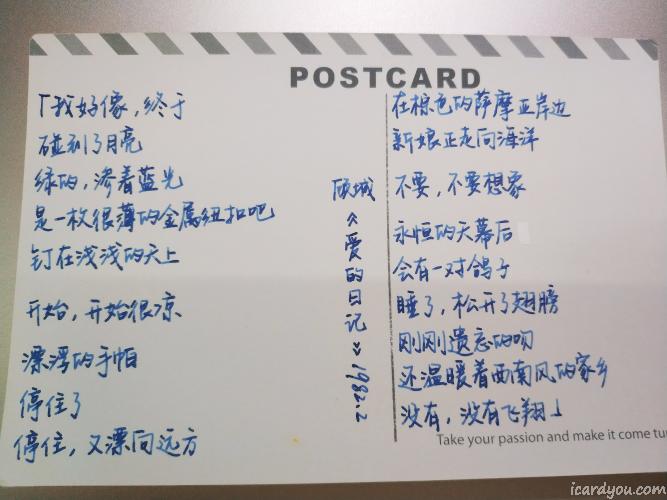 POSTCARD
「我好像，终于
碰到了月亮
绿的，渗着蓝光
是一枚很薄的金属纽扣吧
钉在浅浅的天上
开始，开始很凉
漂浮的手帕
停住了
停住，又漂向远方
顾城《爱的日记》1982.2
在棕色的萨摩亚岸边
新娘正走向海洋
不要，不要想象
永恒的天幕后
会有一对鸽子
睡了，松开了翅膀
刚刚遗忘的吻
还温暖着西南风的家乡
没有，没有飞翔」
Take your passion and make it come tu
icardyou.com